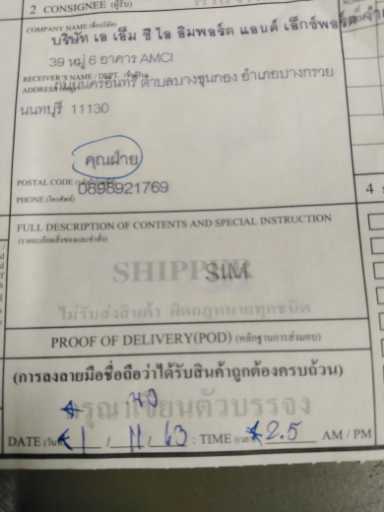 2 CONSIGNEE (ผู้รับ)
COMPANY NAME (ชื่อบริษัท)
บริษัท เอ เอ็ม ซี ไอ อิมพอร์ต แอนด์ เอ็กซ์พอร์ต
39 หมู่ 6 อาคาร AMCI
RECEIVER'S NAME / DEPT.
ถนนนครอินทร์ ตำบลบางขุนกอง อำเภอบางกรวย
ADDRESS
นนทบุรี 11130
คุณฝ้าย
POSTAL CODE
0898921769
PHONE (โทรศัพท์)
4
FULL DESCRIPTION OF CONTENTS AND SPECIAL INSTRUCTION
SHIPPER
SIM
ไม่รับส่งสินค้า ผิดกฎหมายทุกชนิด
PROOF OF DELIVERY(POD) (หลักฐานการส่งมอบ)
(การลงลายมือชื่อถือว่าได้รับสินค้าถูกต้องครบถ้วน)
กรุณาเขียนตัวบรรจง
DATE (วันที่) 1 / 11 / 63 : TIME (เวลา) 2.5 AM / PM